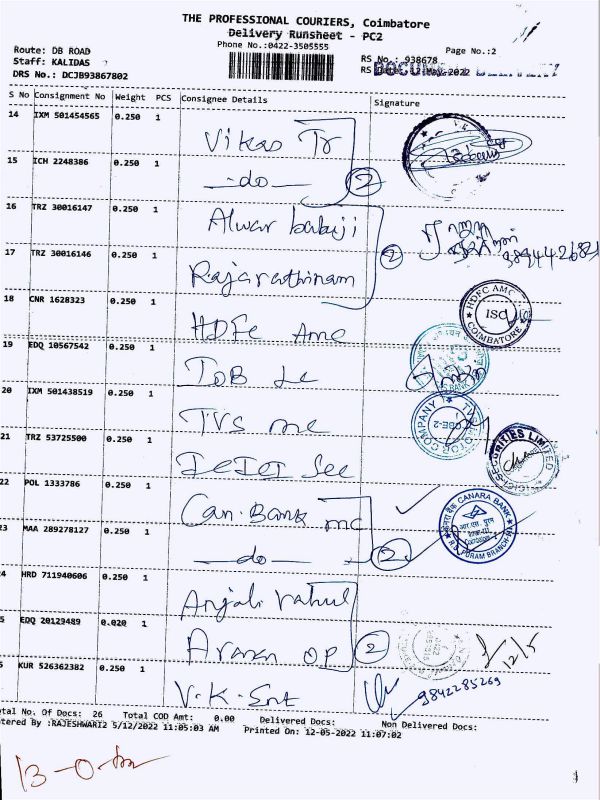 THE PROFESSIONAL COURIERS, Coimbatore
Delivery Runsheet - PC2
Phone No.:0422-3505555
Page No.:2
Route: DB ROAD
RS No.: 938678
Staff: KALIDAS
RS Date: 12-May-2022
DRS No.: DCJB93867802
S No Consignment No Weight PCS Consignee Details Signature
14 IXM 501454565 0.250 1
Vikas Tr
15 ICH 2248386 0.250 1
-do- 2
16 TRZ 30016147 0.250 1
Alwar babuji
17 TRZ 30016146 0.250 1
2
Rajarathinam
18 CNR 1628323 0.250 1
HDFC AMC
ISC
COIMBATORE
HDFC AMC
19 EDQ 10567542 0.250 1
IOB
20 IXM 501438519 0.250 1
TVS mc
MOTOR COMPANY
CBE-2
21 TRZ 53725500 0.250 1
ICICI Sec
ICICI SECURITIES LIMITED
22 POL 1333786 0.250 1
Can.Bank mc
CANARA BANK
R.S. PURAM BRANCH
23 MAA 289278127 0.250 1
-do- 2
24 HRD 711940606 0.250 1
Anjali rahul
25 EDQ 20129489 0.020 1
OP 2
12/5
26 KUR 526362382 0.250 1
V.K.
9842285269
Total No. Of Docs: 26 Total COD Amt: 0.00 Delivered Docs: Non Delivered Docs:
Entered By :RAJESHWARI2 5/12/2022 11:05:03 AM Printed On: 12-05-2022 11:07:02